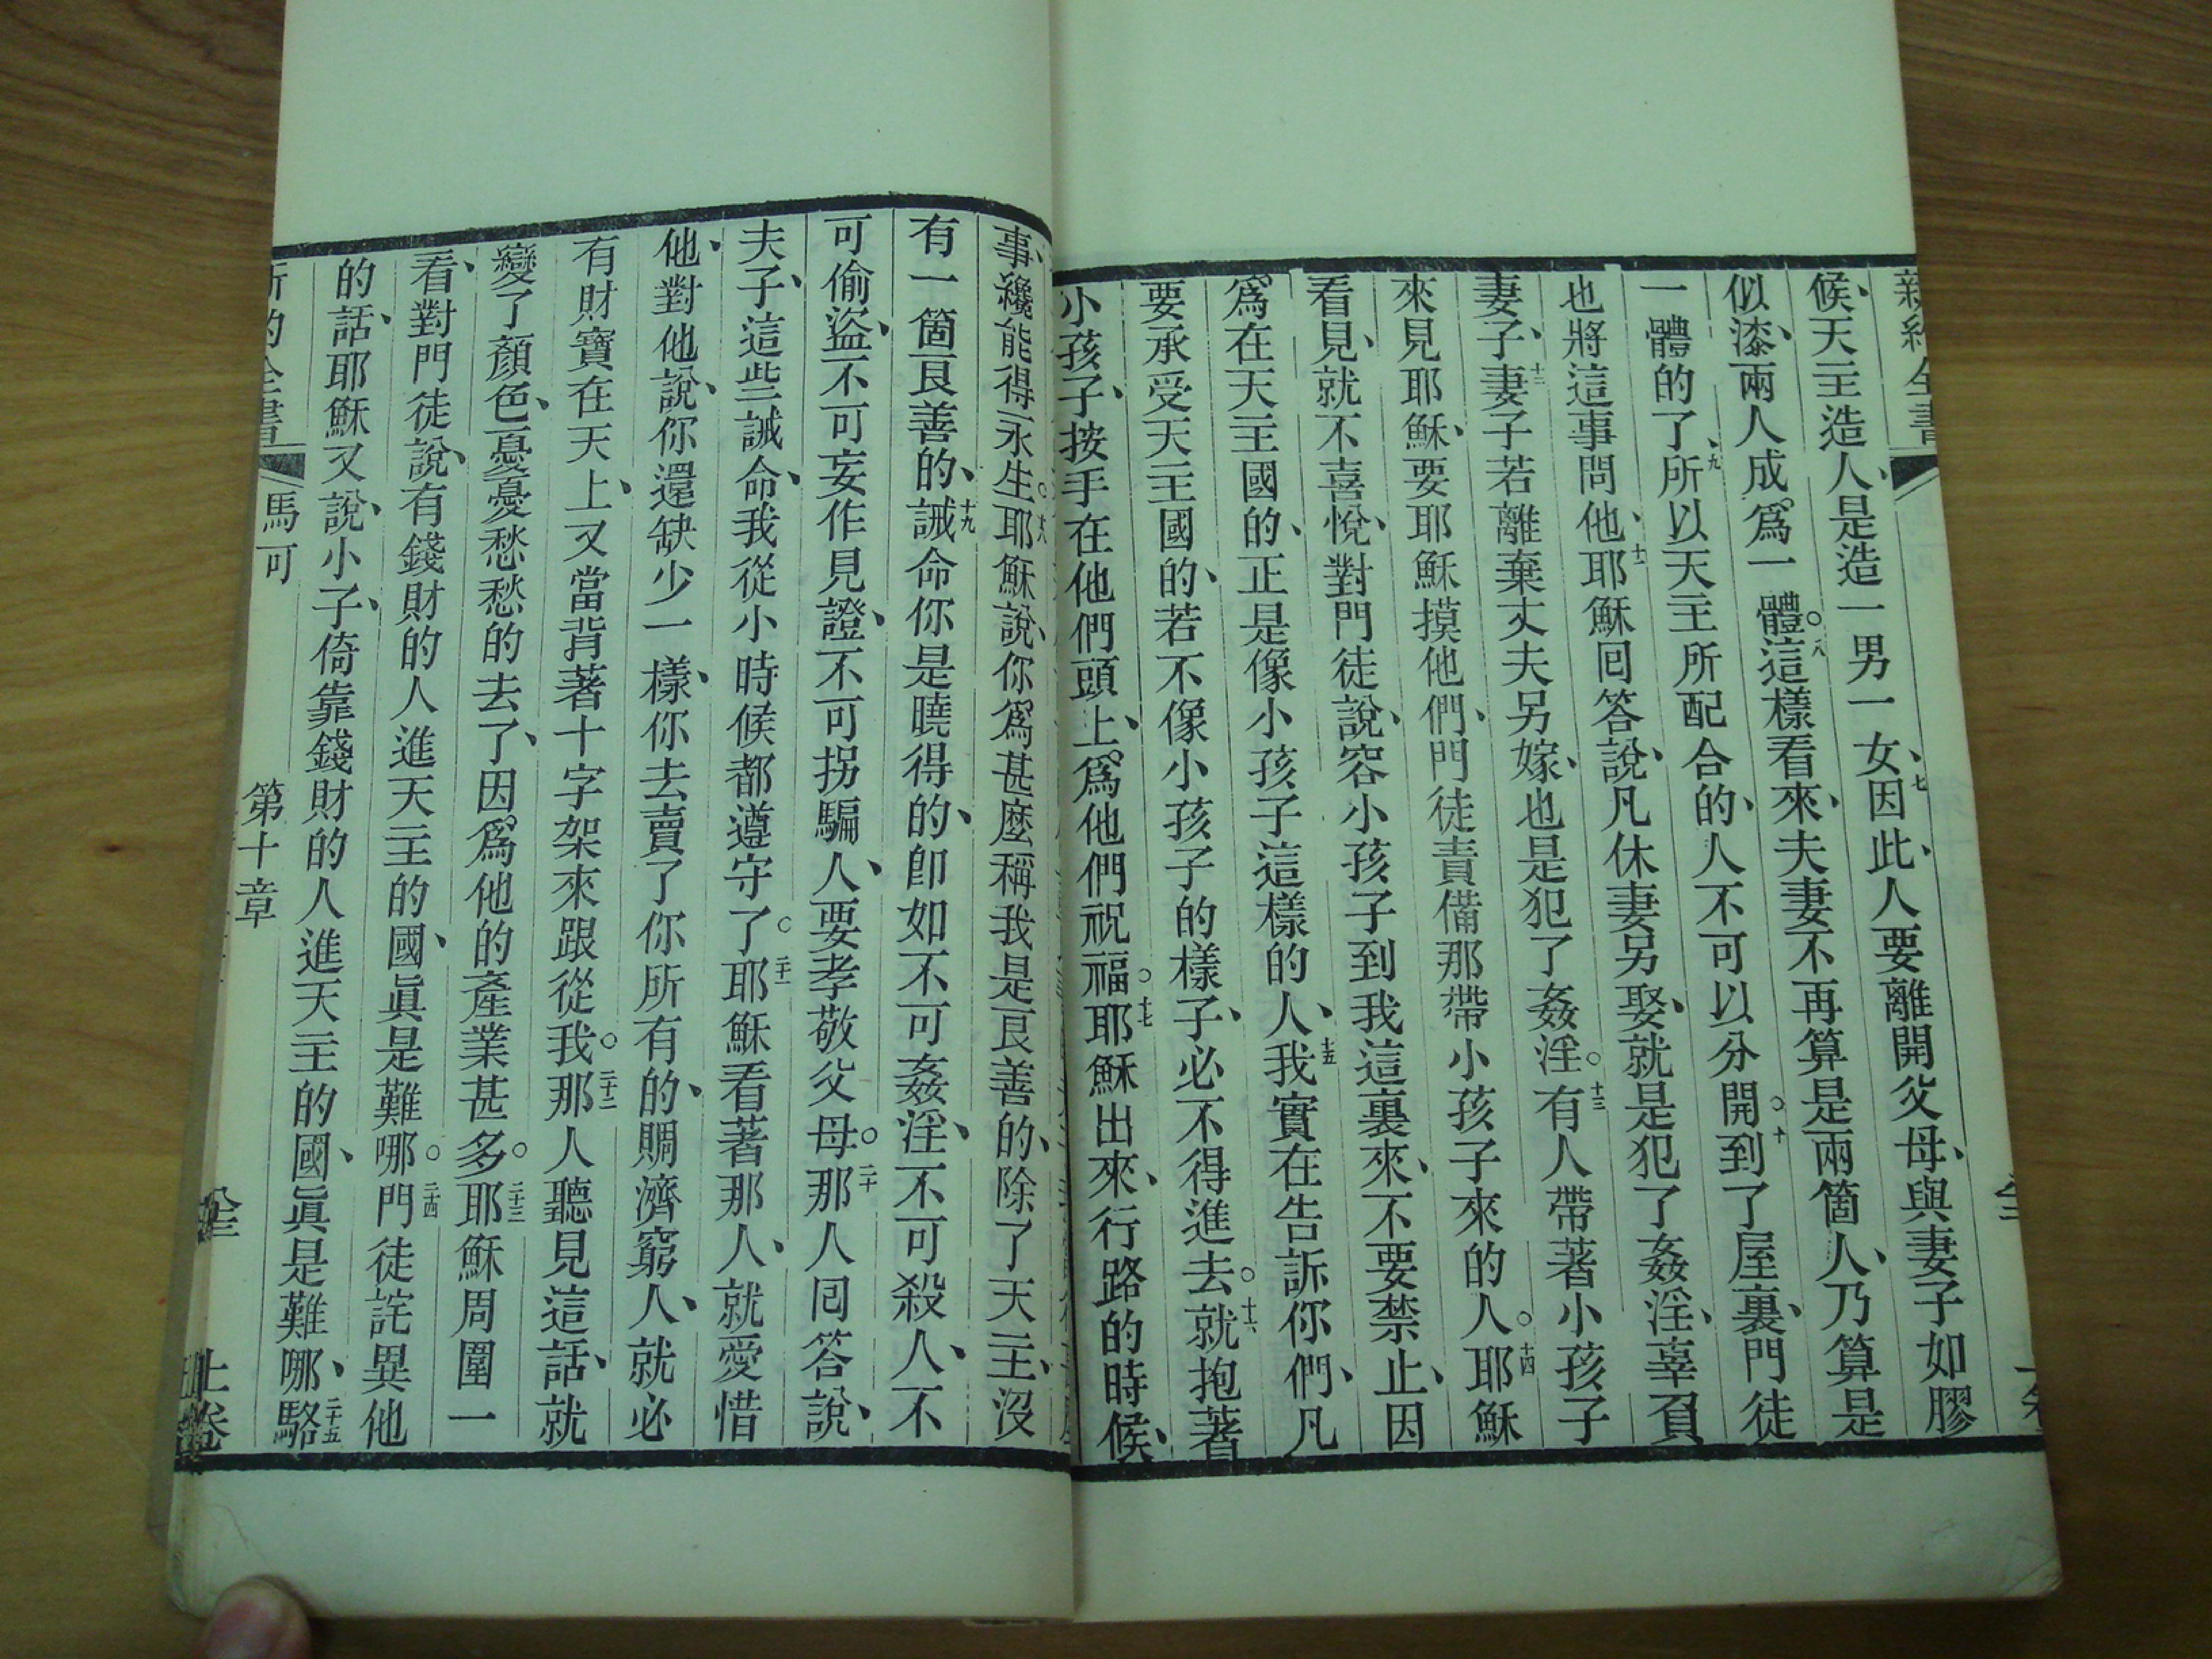 新約全書
候、天主造人、是造一男一女、七因此、人要離開父母、與妻子如膠
似漆、兩人成爲一體。八這樣看來、夫妻不再算是兩箇人、乃算是
一體的了、九所以天主所配合的、人不可以分開。十到了屋裏、門徒
也將這事問他、十一耶穌回答說、凡休妻另娶、就是犯了姦淫、辜負
妻子、十二妻子若離棄丈夫另嫁、也是犯了姦淫。十三有人帶著小孩子
來見耶穌、要耶穌摸他們、門徒責備那帶小孩子來的人。十四耶穌
看見、就不喜悅、對門徒說、容小孩子到我這裏來、不要禁止、因
爲在天主國的、正是像小孩子這樣的人、十五我實在告訴你們、凡
要承受天主國的、若不像小孩子的樣子、必不得進去。十六就抱著
小孩子、按手在他們頭上、爲他們祝福。十七耶穌出來、行路的時候、
事、纔能得永生。十八耶穌說、你爲甚麼稱我是良善的、除了天主、沒
有一箇良善的、十九誡命你是曉得的、卽如不可姦淫、不可殺人、不
可偷盜、不可妄作見證、不可拐騙人、要孝敬父母。二十那人回答說、
夫子、這些誡命、我從小時候都遵守了。二十一耶穌看著那人、就愛惜
他、對他說、你還缺少一樣、你去賣了你所有的、賙濟窮人、就必
有財寶在天上、又當背著十字架來跟從我。二十二那人聽見這話、就
變了顏色、憂憂愁愁的去了、因爲他的產業甚多。二十三耶穌周圍一
看、對門徒說、有錢財的人進天主的國、眞是難哪。二十四門徒詫異他
的話、耶穌又說、小子、倚靠錢財的人進天主的國、眞是難哪、二十五駱
馬可 第十章 上卷